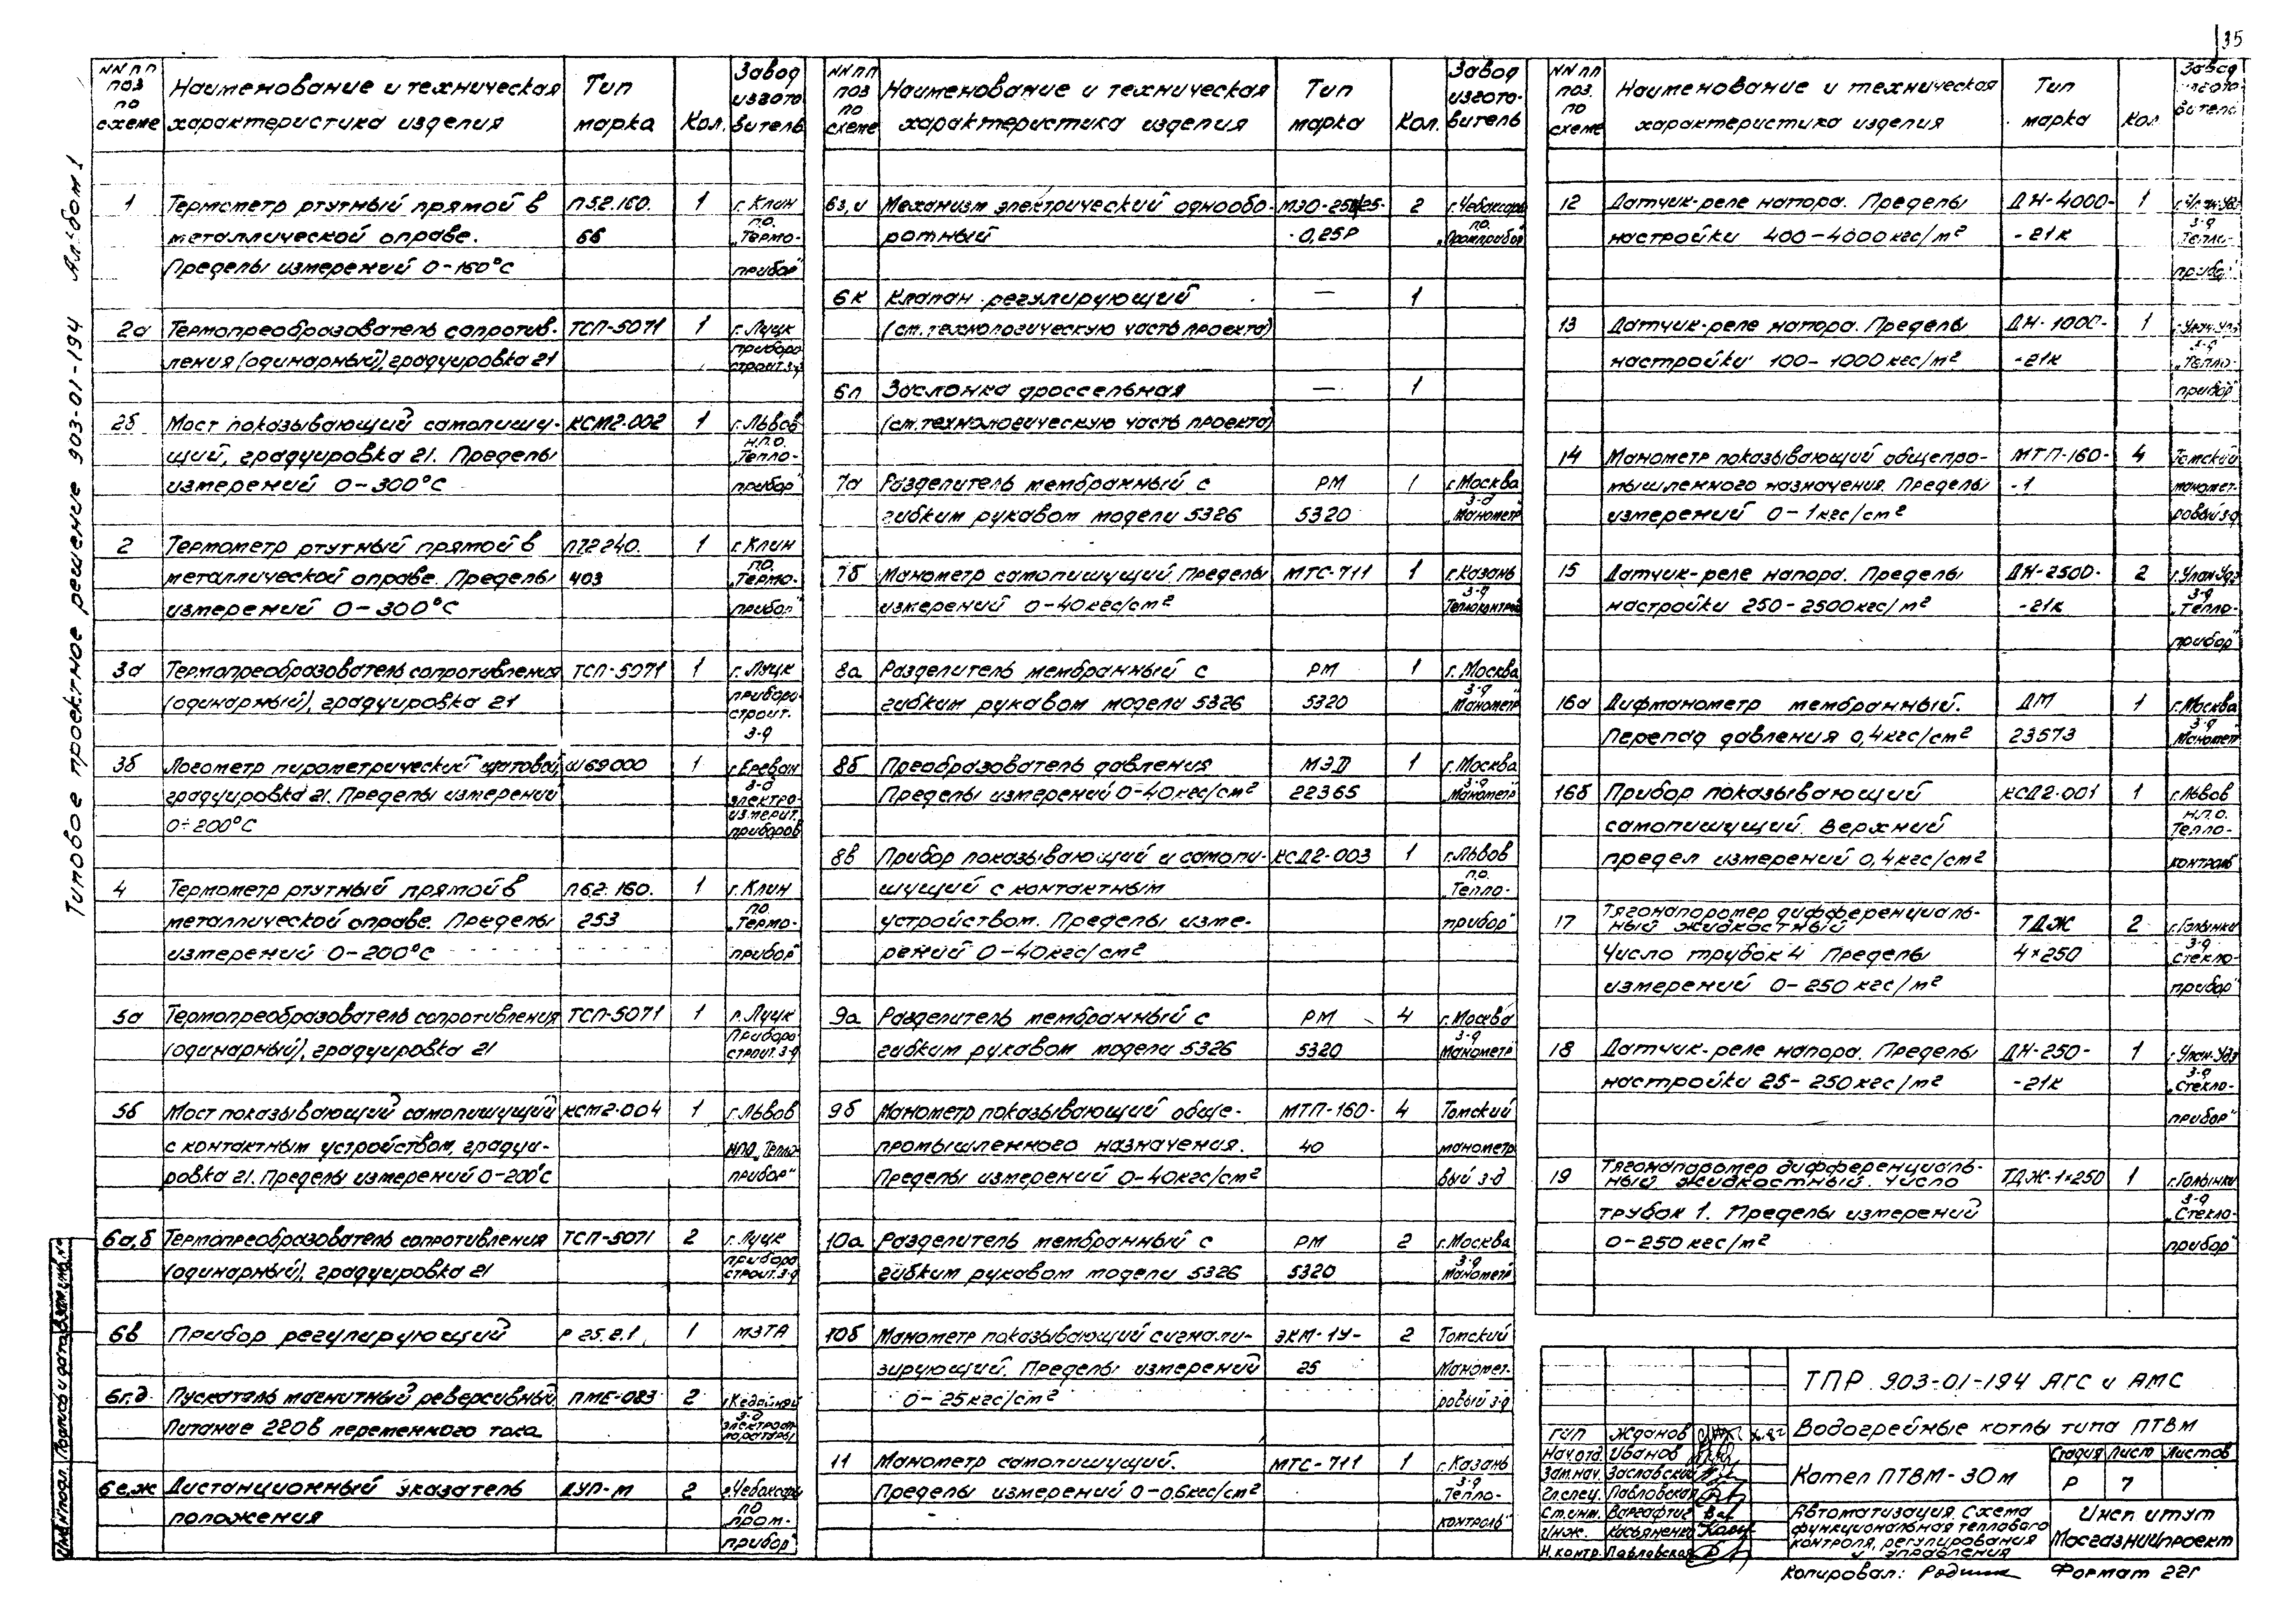 35
Типовое проектное решение 903-01-194 Альбом 1
NN пп поз по схеме
Наименование и техническая характеристика изделия
Тип марка
Кол.
Завод изготовитель
1 Термометр ртутный прямой в П52.160. 1 г. Клин
металлической оправе. 66 п.о. „Термо-
Пределы измерений 0-160°С прибор"
2а Термопреобразователь сопротив- ТСП-5071 1 г. Луцк
ления (одинарный), градуировка 21 приборо строит. з-д
2б Мост показывающий самопишу- КСМ2-002 1 г. Львов
щий, градуировка 21. Пределы н.п.о. „Тепло-
измерений 0-300°С прибор"
2 Термометр ртутный прямой в П72240. 1 г. Клин
металлической оправе. Пределы 403 п.о. „Термо-
измерений 0-300°С прибор"
3а Термопреобразователь сопротивления ТСП-5071 1 г. Луцк
(одинарный), градуировка 21 приборо- строит.
з-д
3б Логометр пирометрический щитовой, Ш69000 1 г. Ереван
градуировка 21. Пределы измерений з-д электро-
0÷200°С измерит. приборов
4 Термометр ртутный прямой в П62.160. 1 г. Клин
металлической оправе. Пределы 253 п.о. „Термо-
измерений 0-200°С прибор"
5а Термопреобразователь сопротивления ТСП-5071 1 г. Луцк
(одинарный), градуировка 21 Приборо строит. з-д
5б Мост показывающий самопишущий КСМ2-004 1 г. Львов
с контактным устройством, градуи- НПО „Тепло-
ровка 21. Пределы измерений 0-200°С прибор"
6а,б Термопреобразователь сопротивления ТСП-5071 2 г. Луцк
(одинарный), градуировка 21 приборо строит. з-д
6в Прибор регулирующий Р 25.2.1 1 МЗТА
6г,д Пускатель магнитный реверсивный. ПМЕ-083 2
Питание 220в переменного тока з-д
6е,ж Дистанционный указатель ДУП-М 2 г. Чебоксары
положения по „пром-
прибор"
NN пп поз по схеме
Наименование и техническая характеристика изделия
Тип марка
Кол.
Завод изготовитель
6з,и Механизм электрический однообо- 2 г. Чебоксары
ротный -0,25Р п.о. „Промприбор"
6к Клапан регулирующий — 1
(см. технологическую часть проекта)
6л Заслонка дроссельная — 1
(см. технологическую часть проекта)
7а Разделитель мембранный с РМ 1 г. Москва
гибким рукавом модели 5326 5320 з-д „Манометр"
7б Манометр самопишущий. Пределы МТС-711 1 г. Казань
измерений 0-40кгс/см² з-д Теплоконтроль
8а Разделитель мембранный с РМ 1 г. Москва
гибким рукавом модели 5326 5320 з-д „Манометр"
8б Преобразователь давления МЭД 1 г. Москва
Пределы измерений 0-40кгс/см² 22365 з-д „Манометр"
8в Прибор показывающий и самопи- КСД2-003 1 г. Львов
шущий с контактным п.о. „Тепло-
устройством. Пределы изме- прибор"
рений 0-40кгс/см²
9а Разделитель мембранный с РМ 4 г. Москва
гибким рукавом модели 5326 5320 з-д Манометр"
9б Манометр показывающий обще- МТП-160- 4 Томский
промышленного назначения. 40 манометр
Пределы измерений 0-40кгс/см² вый з-д
10а Разделитель мембранный с РМ 2 г. Москва
гибким рукавом модели 5326 5320 з-д „Манометр"
10б Манометр показывающий сигнали- ЭКМ-1У- 2 Томский
зирующий. Пределы измерений 25 Маномет-
0-25кгс/см² ровый з-д
11 Манометр самопишущий. МТС-711 1 г. Казань
Пределы измерений 0-0,6кгс/см² з-д „Тепло-
контроль"
NN пп поз. по схеме
Наименование и техническая характеристика изделия
Тип марка
Кол
Завод изготовитель
12 Датчик-реле напора. Пределы ДН-4000- 1 г. Улан-Удэ
настройки 400-4000кгс/м² -21к з-д „Тепло-
прибор"
13 Датчик-реле напора. Пределы ДН-1000- 1 г. Улан-Удэ
настройки 100-1000кгс/м² -21к з-д „Тепло-
прибор"
14 Манометр показывающий общепро- МТП-160- 4 Томский
мышленного назначения. Пределы -1 маномет-
измерений 0-1кгс/см² ровый з-д
15 Датчик-реле напора. Пределы ДН-2500- 2 г. Улан-Удэ
настройки 250-2500кгс/м² -21к з-д „Тепло-
прибор"
16а Дифманометр мембранный. ДМ 1 г. Москва
Перепад давления 0,4кгс/см² 23573 з-д „Манометр"
16б Прибор показывающий КСД2-001 1 г. Львов
самопишущий. Верхний н.п.о. Тепло-
предел измерений 0,4кгс/см² контроль"
17 Тягонапоромер дифференциаль- ный жидкостный ТДЖ 2 г. Голынки
Число трубок 4 Пределы 4×250 з-д „Стекло-
измерений 0-250кгс/м² прибор"
18 Датчик-реле напора. Пределы ДН-250- 1 г. Улан-Удэ
настройки 25-250кгс/м² -21к з-д „Стекло-
прибор"
19 Тягонапоромер дифференциаль- ный жидкостный. Число ТДЖ-1×250 1 г. Голынки
трубок 1. Пределы измерений з-д „Стекло-
0-250кгс/м² прибор"
ТПР 903-01-194 АГС и АМС
Водогрейные котлы типа ПТВМ
Котел ПТВМ-30м
Стадия Лист Листов
Р 7
Автоматизация. Схема функциональная теплового контроля, регулирования и управления
Институт
МосгазНИИпроект
ГИП Жданов
Нач.отд. Иванов
Зам.нач. Заславский
Гл.спец. Павловская
Ст.инж. Варгафтиг
Инж. Касьяненко
Н.контр. Павловская
Инв.№подл. Подпись и дата Взам.инв.№
Копировал: Формат 22г